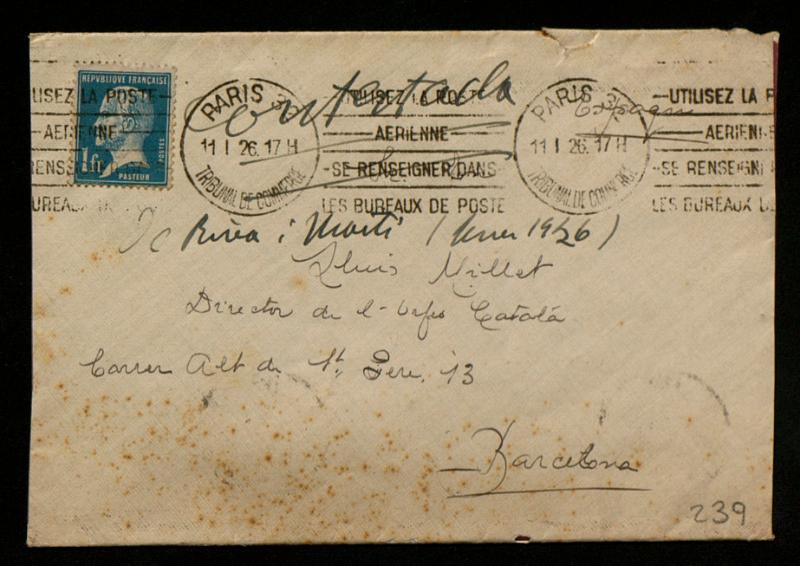 RÉPUBLIQUE FRANÇAISE
1fr
POSTES
PASTEUR
PARIS 3
11 I 26. 17 H
TRIBUNAL DE COMMERCE
UTILISEZ LA POSTE
AERIENNE
SE RENSEIGNER DANS
LES BUREAUX DE POSTE
PARIS 3
11 I 26. 17 H
TRIBUNAL DE COMMERCE
UTILISEZ LA P
AERIENNE
SE RENSEIGN
LES BUREAUX D
LISEZ LA POSTE
AERIENNE
RENSE
BUREAUX
Contestada
Espagne
De Rivera i Martí (Gener 1926)
Lluis Millet
Director de l'Orfeó Català
Carrer Alt de St. Pere, 13
Barcelona
239